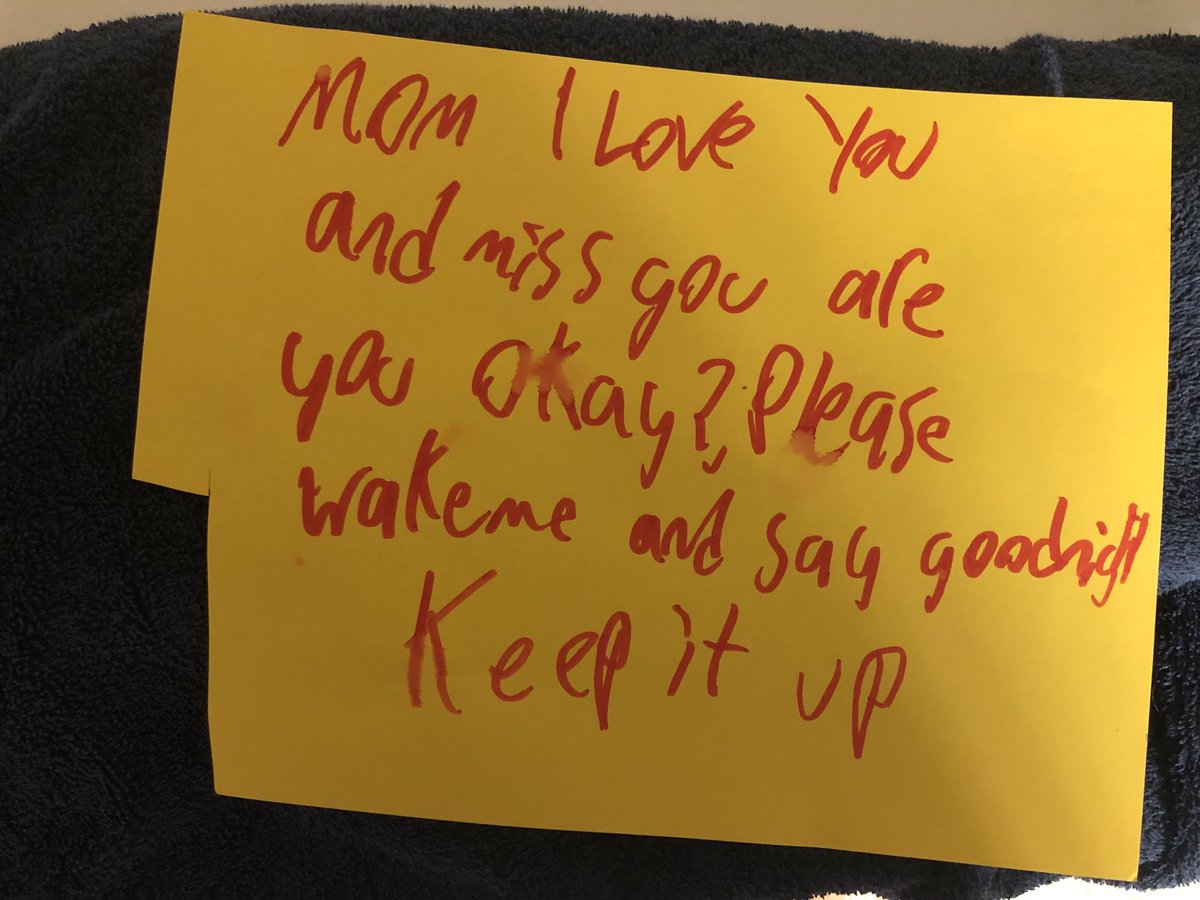 Mom I Love You
and miss you are
you okay? Please
wake me and say goodnight
Keep it up